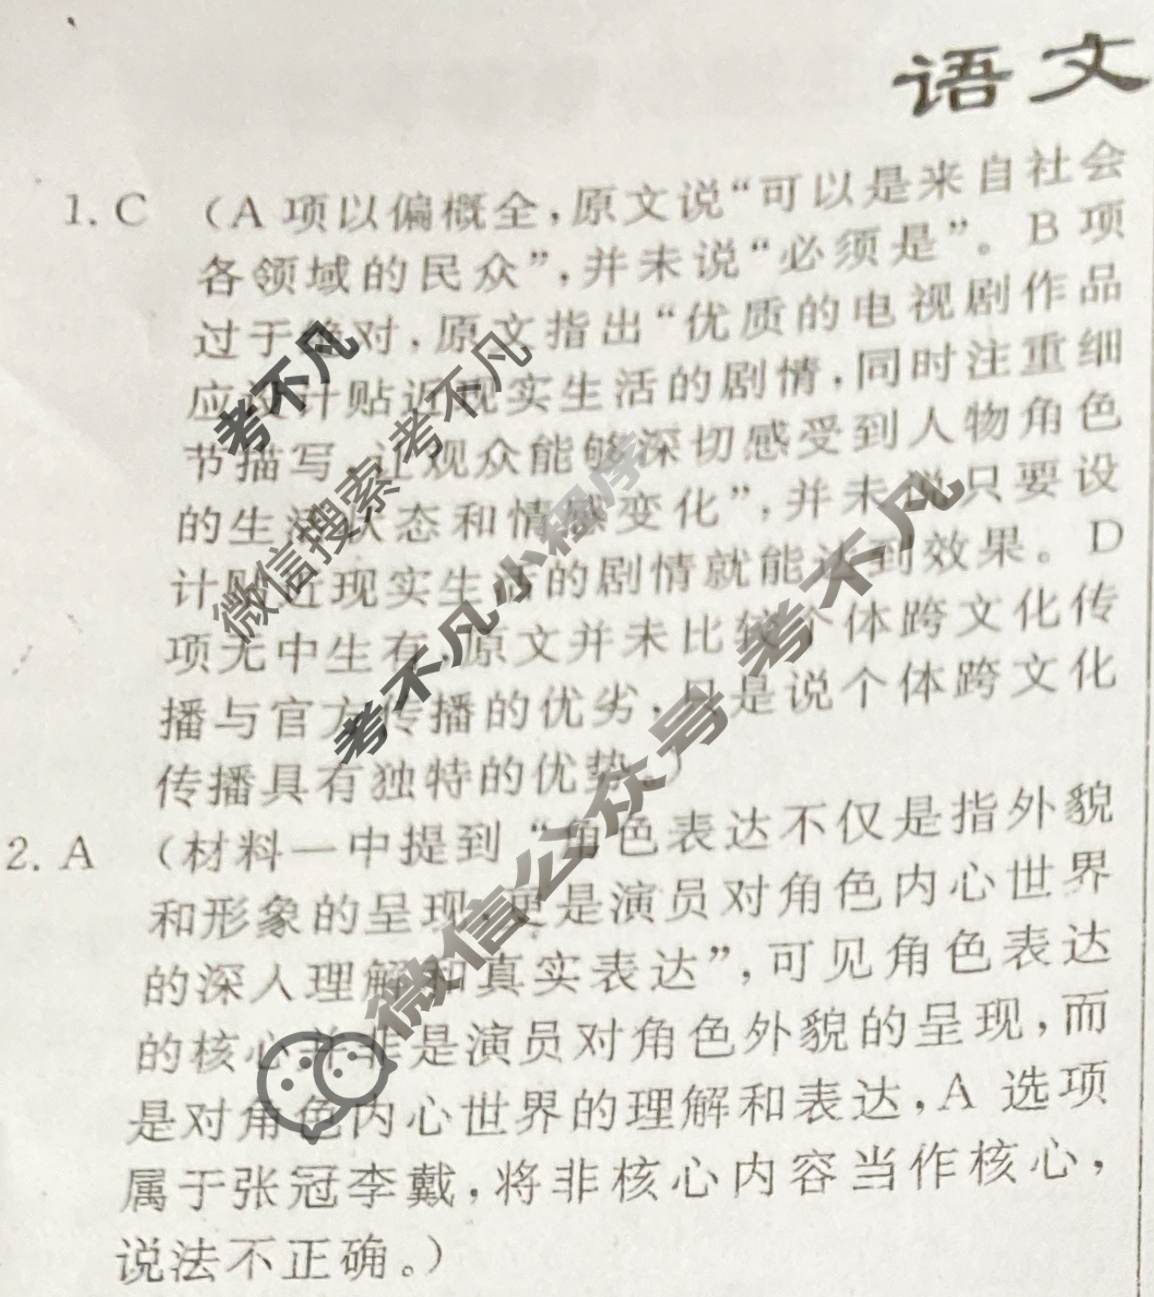 语文
1. C （A 项以偏概全，原文说“可以是来自社会
各领域的民众”，并未说“必须是”。B 项
过于绝对，原文指出“优质的电视剧作品
应设计贴近现实生活的剧情，同时注重细
节描写，让观众能够深切感受到人物角色
的生活状态和情感变化”，并未说只要设
计贴近现实生活的剧情就能达到效果。D
项无中生有，原文并未比较个体跨文化传
播与官方传播的优劣，只是说个体跨文化
传播具有独特的优势。）
2. A （材料一中提到“角色表达不仅是指外貌
和形象的呈现，更是演员对角色内心世界
的深入理解和真实表达”，可见角色表达
的核心并非是演员对角色外貌的呈现，而
是对角色内心世界的理解和表达，A 选项
属于张冠李戴，将非核心内容当作核心，
说法不正确。）
考不凡
微信搜索 考不凡
考不凡小程序
微信公众号 考不凡